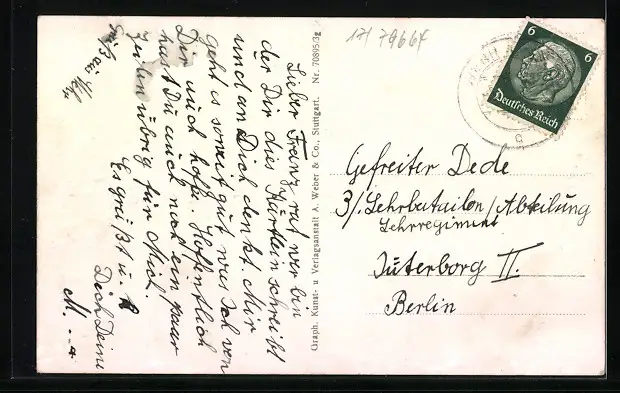 Lieber Franz, rat wer bin
der Dir dies Kärtlein schreibt
und an Dich denkt. Mir
geht es soweit gut was Ich von
Dir auch hoffe. Hoffentlich
hast Du auch noch ein paar
Zeilen übrig für Mich.
Es grüßt u.
Dich Deine
M. .... a
Graph. Kunst- u Verlagsanstalt A. Weber & Co., Stuttgart. Nr. 70895/3g
17/ 79664
6 6
Deutsches Reich
a
Gefreiter Dede
3/. Lehrbatailon/Abteilung
Lehrregiment
Jüterborg II.
Berlin